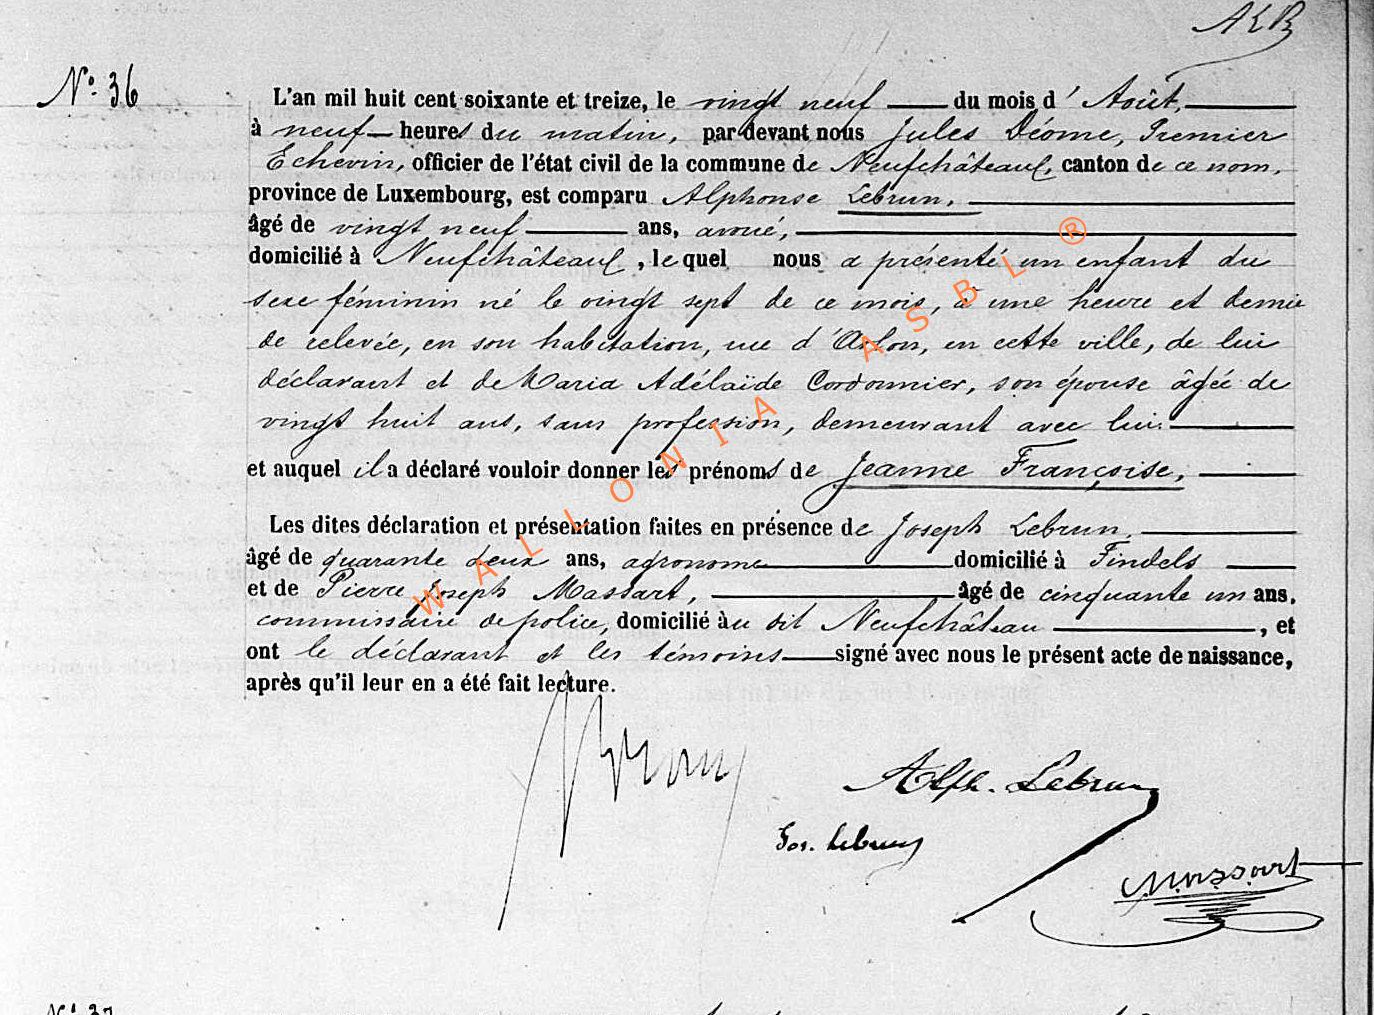 N° 36
L'an mil huit cent soixante et treize, le vingt neuf du mois d'Août,
à neuf heures du matin, pardevant nous Jules Déome, Premier
Echevin, officier de l'état civil de la commune de Neufchâteau, canton de ce nom,
province de Luxembourg, est comparu Alphonse Lebrun,
âgé de vingt neuf ans, avoué,
domicilié à Neufchâteau, lequel nous a présenté un enfant du
sexe féminin né le vingt sept de ce mois, à une heure et demie
de relevée, en son habitation, rue d'Arlon, en cette ville, de lui
déclarant et de Maria Adélaïde Cordonnier, son épouse âgée de
vingt huit ans, sans profession, demeurant avec lui.
et auquel il a déclaré vouloir donner les prénoms de Jeanne Françoise,
Les dites déclaration et présentation faites en présence de Joseph Lebrun,
âgé de quarante deux ans, agronome domicilié à Findels
et de Pierre Joseph Massart, âgé de cinquante un ans,
commissaire de police, domicilié àu dit Neufchâteau, et
ont le déclarant et les témoins signé avec nous le présent acte de naissance,
après qu'il leur en a été fait lecture.
Alph. Lebrun
Jos. Lebrun
Massart
N° 37
WALLONIA ASBL ®